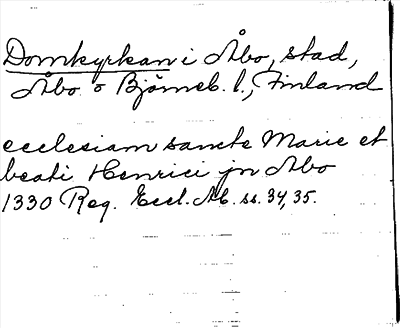 Domkyrkan i Åbo, stad,
Åbo o Björneb. l., Finland
ecclesiam sancte Marie et
beati Henrici jn Abo
1330 Reg. Eccl. Ab. ss. 34, 35.